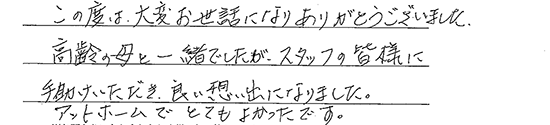 この度は、大変お世話になりありがとうございました。
高齢の母と一緒でしたが、スタッフの皆様に
手助けいただき、良い想い出になりました。
アットホームでとてもよかったです。